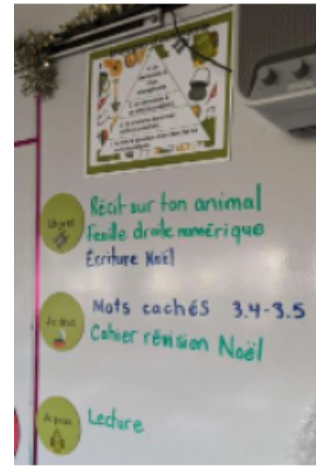 Urgent
Récit sur ton animal
Feuille droite numérique
Écriture Noël
Je dois
Mots cachés 3.4-3.5
Cahier révision Noël
Je peux
Lecture